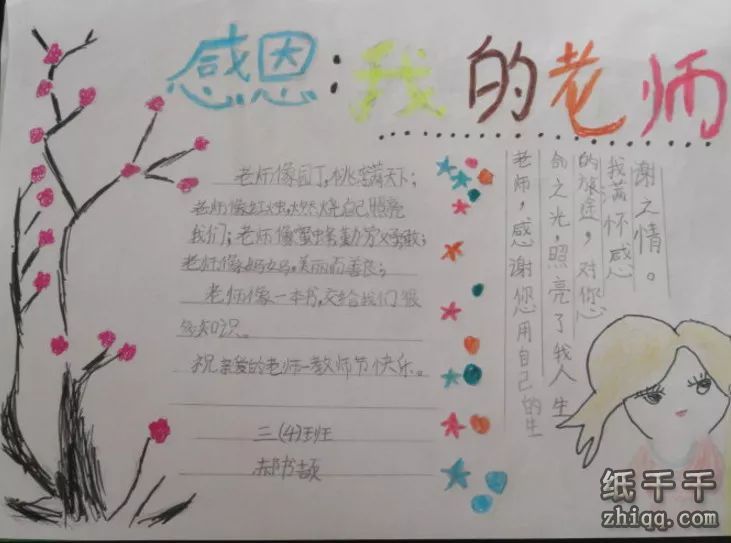 感恩:我的老师
老师像园丁,桃李满天下;
老师像红烛,燃烧自己照亮
我们;老师像蜜蜂勤劳勇敢;
老师像妈妈,美丽而善良;
老师像一本书,交给我们很
多知识。
祝亲爱的老师—教师节快乐。
三(4)班
郝书
老师,感谢您用自己的生
命之光,照亮了我人生
的旅途,对您
我满怀感
谢之情。
纸千千
zhiqq.com